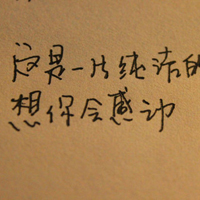 这是一片纯洁的
想你会感动